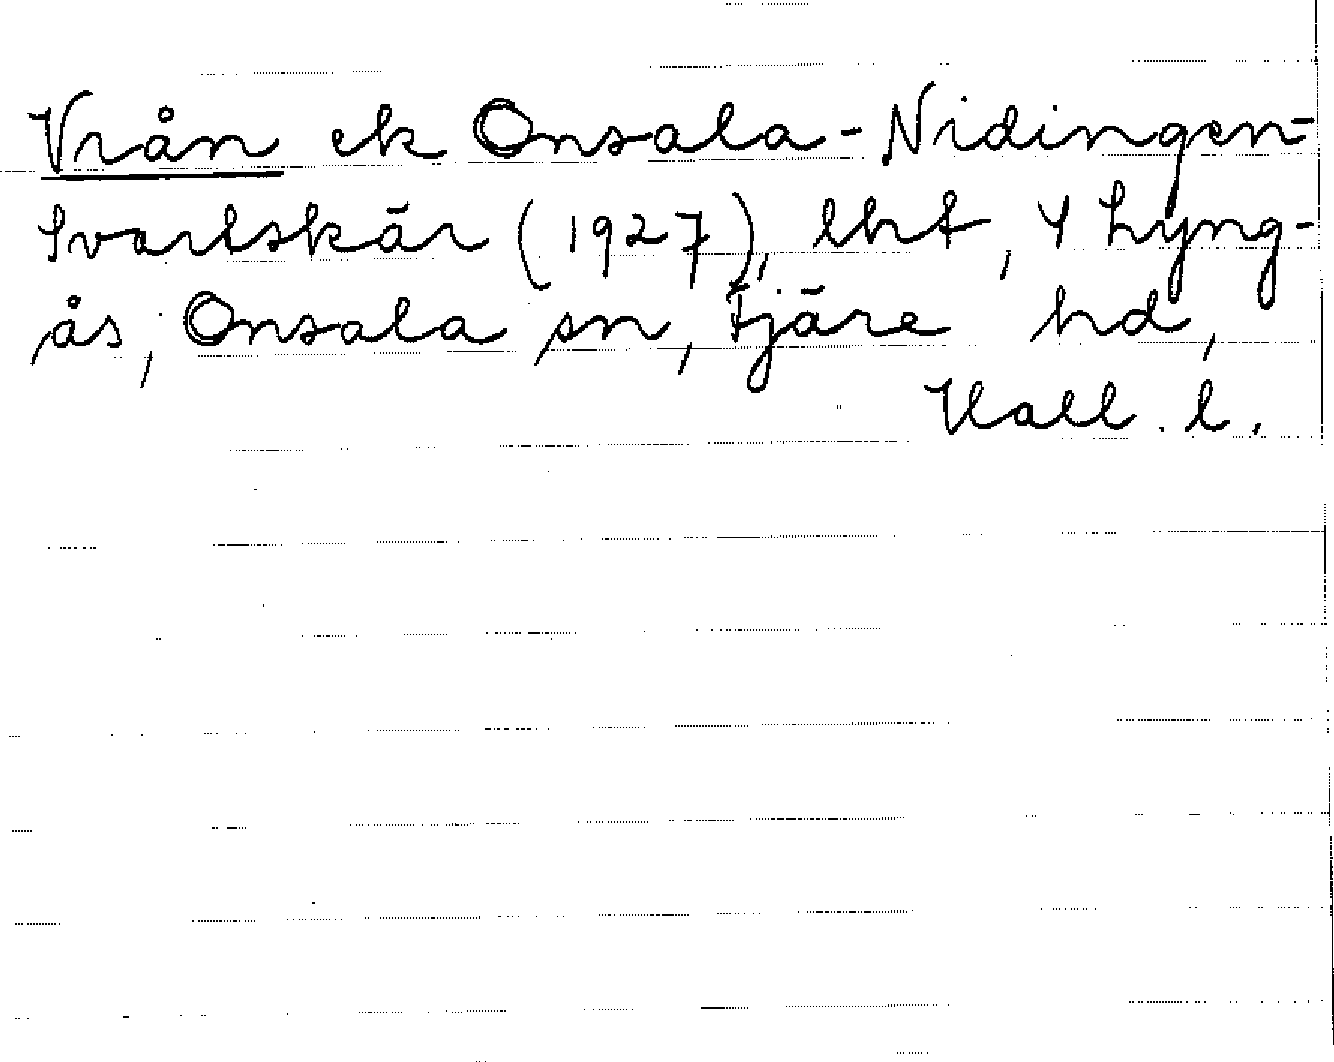 Vrån ek Onsala-Nidingen-
Svartskär (1927), lht, Y Lyng-
ås, Onsala sn, Fjäre hd,
Hall. l.